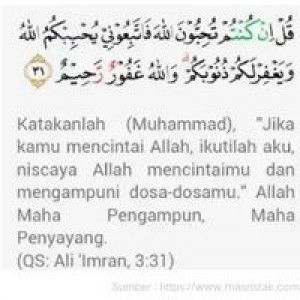 قُلْ إِنْ كُنْتُمْ تُحِبُّونَ اللَّهَ فَاتَّبِعُونِي يُحْبِبْكُمُ اللَّهُ
وَيَغْفِرْ لَكُمْ ذُنُوبَكُمْ ۗ وَاللَّهُ غَفُورٌ رَحِيمٌ ٣١
Katakanlah (Muhammad), "Jika
kamu mencintai Allah, ikutilah aku,
niscaya Allah mencintaimu dan
mengampuni dosa-dosamu." Allah
Maha Pengampun, Maha
Penyayang.
(QS: Ali 'Imran, 3:31)
Sumber : https://www.masrozak.com